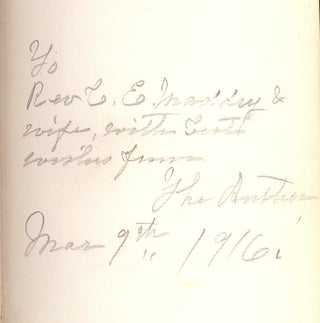 To
Rev C. E. Maddry &
wife, with best
wishes from
The Author,
Mar 9th, 1916.